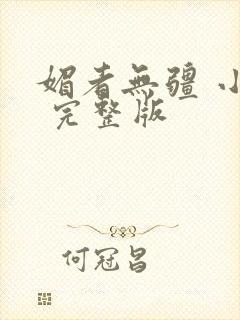 媚者無疆 小
完整版
何冠昌